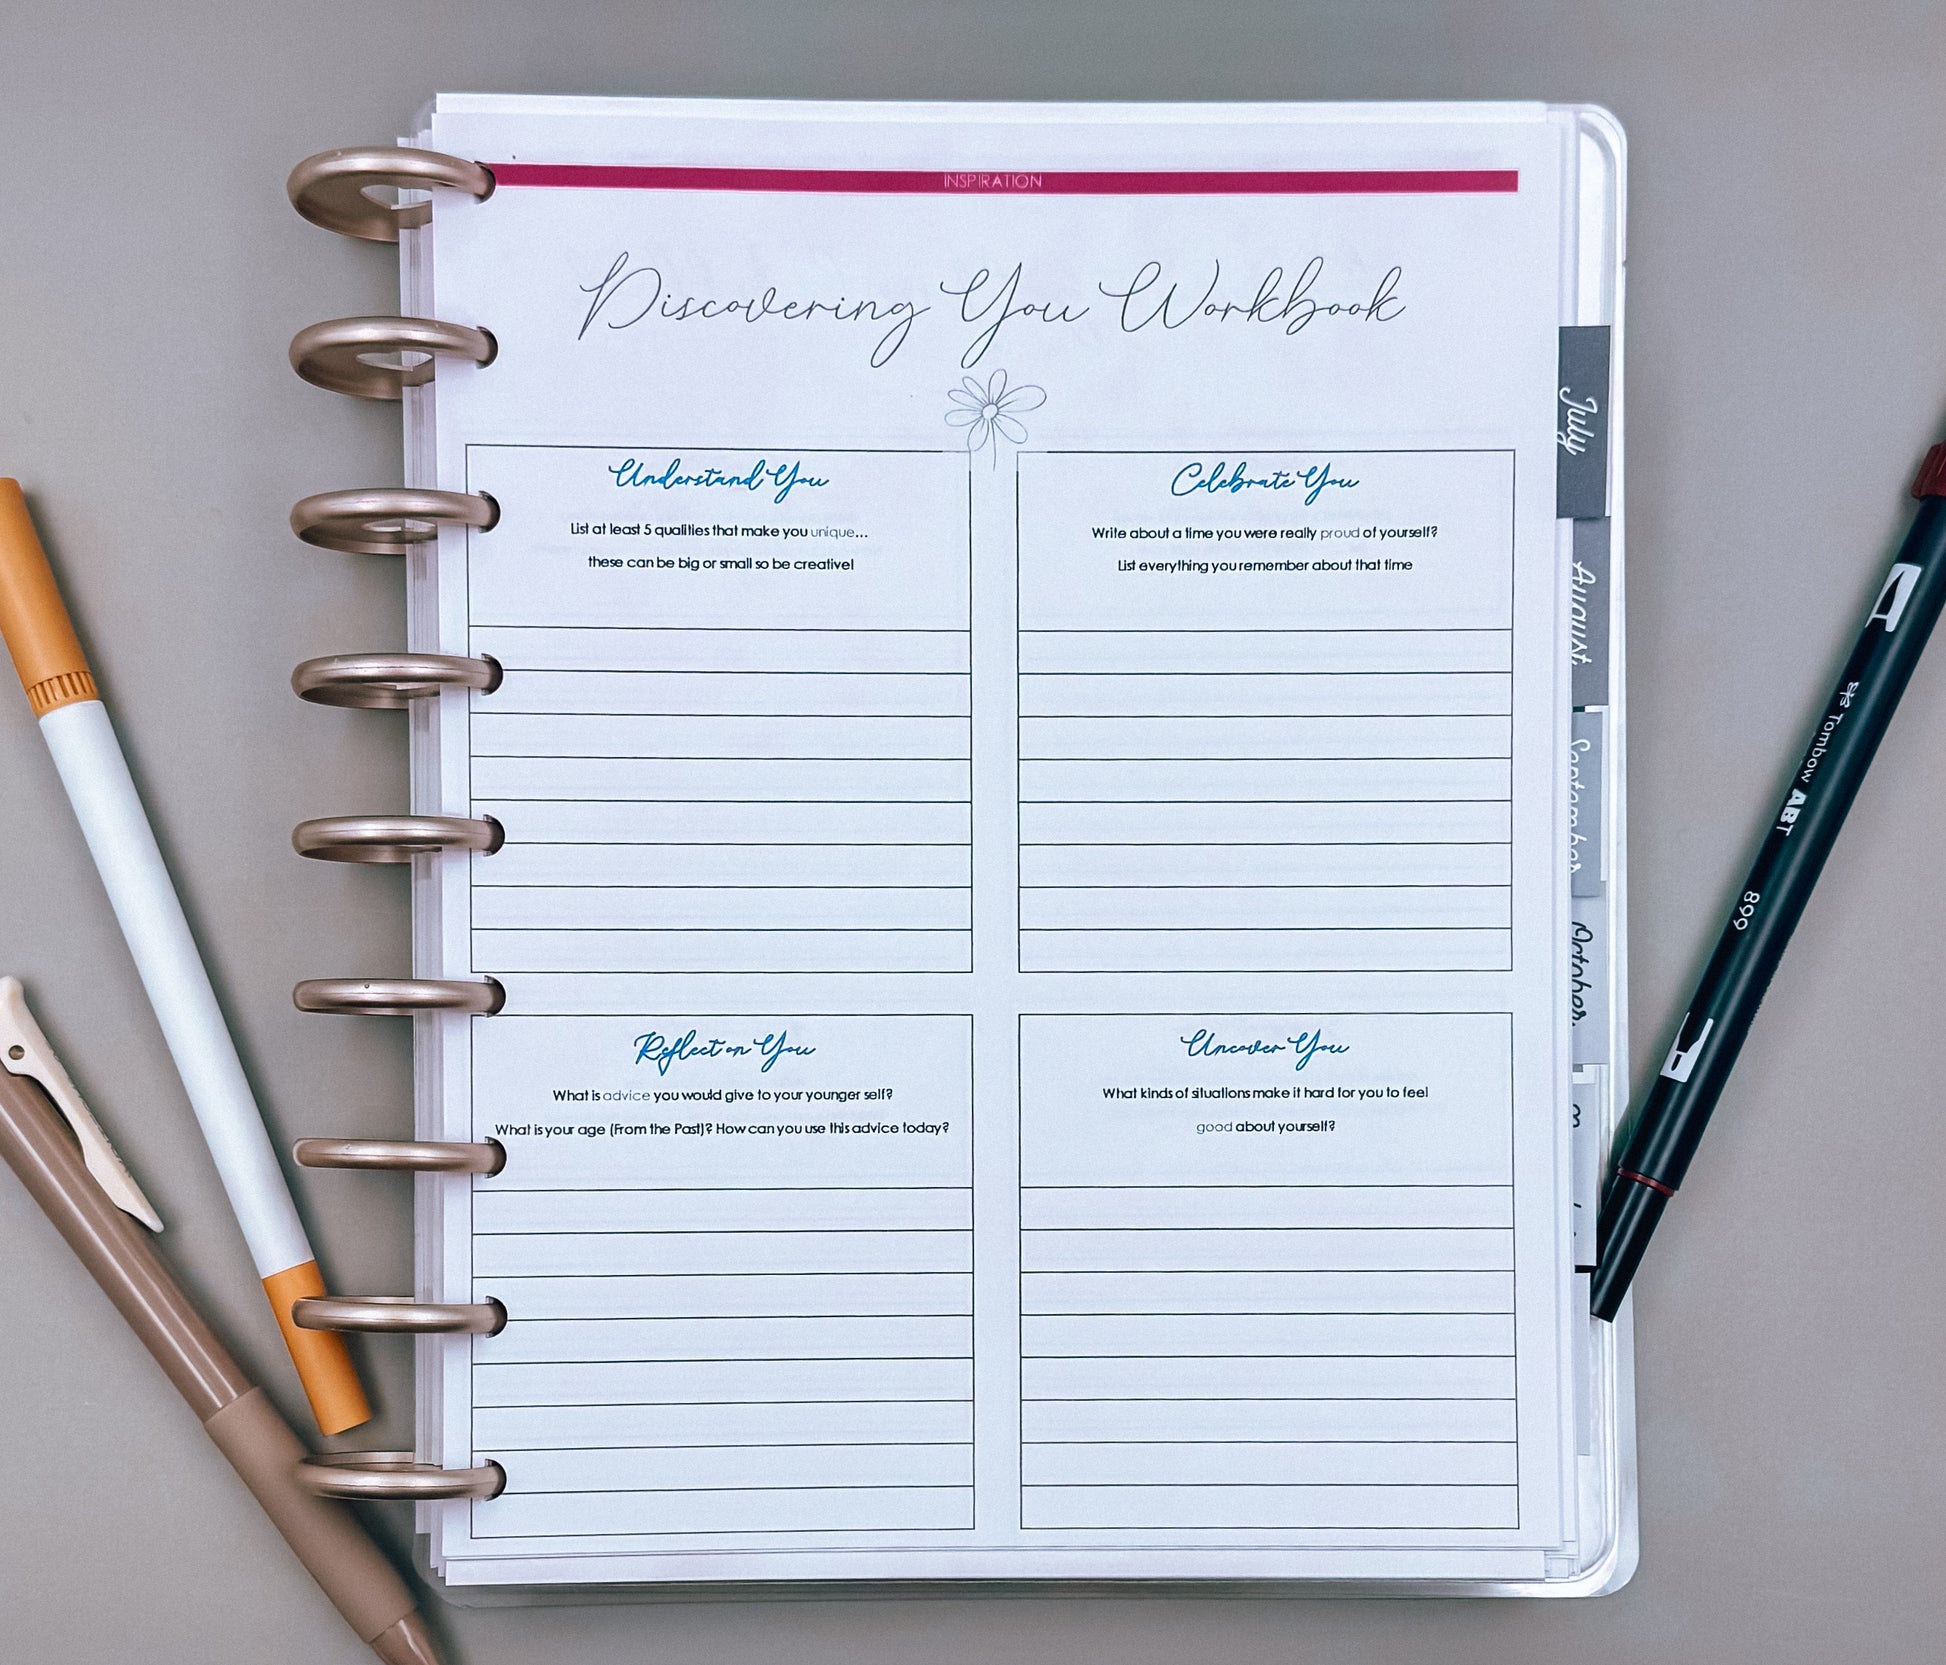 INSPIRATION
Discovering You Workbook
Understand You
List at least 5 qualities that make you unique...
these can be big or small so be creative!
Celebrate You
Write about a time you were really proud of yourself?
List everything you remember about that time
Reflect on You
What is advice you would give to your younger self?
What is your age (From the Past)? How can you use this advice today?
Uncover You
What kinds of situations make it hard for you to feel
good about yourself?
July
August
September
October
Tombow ABT
899